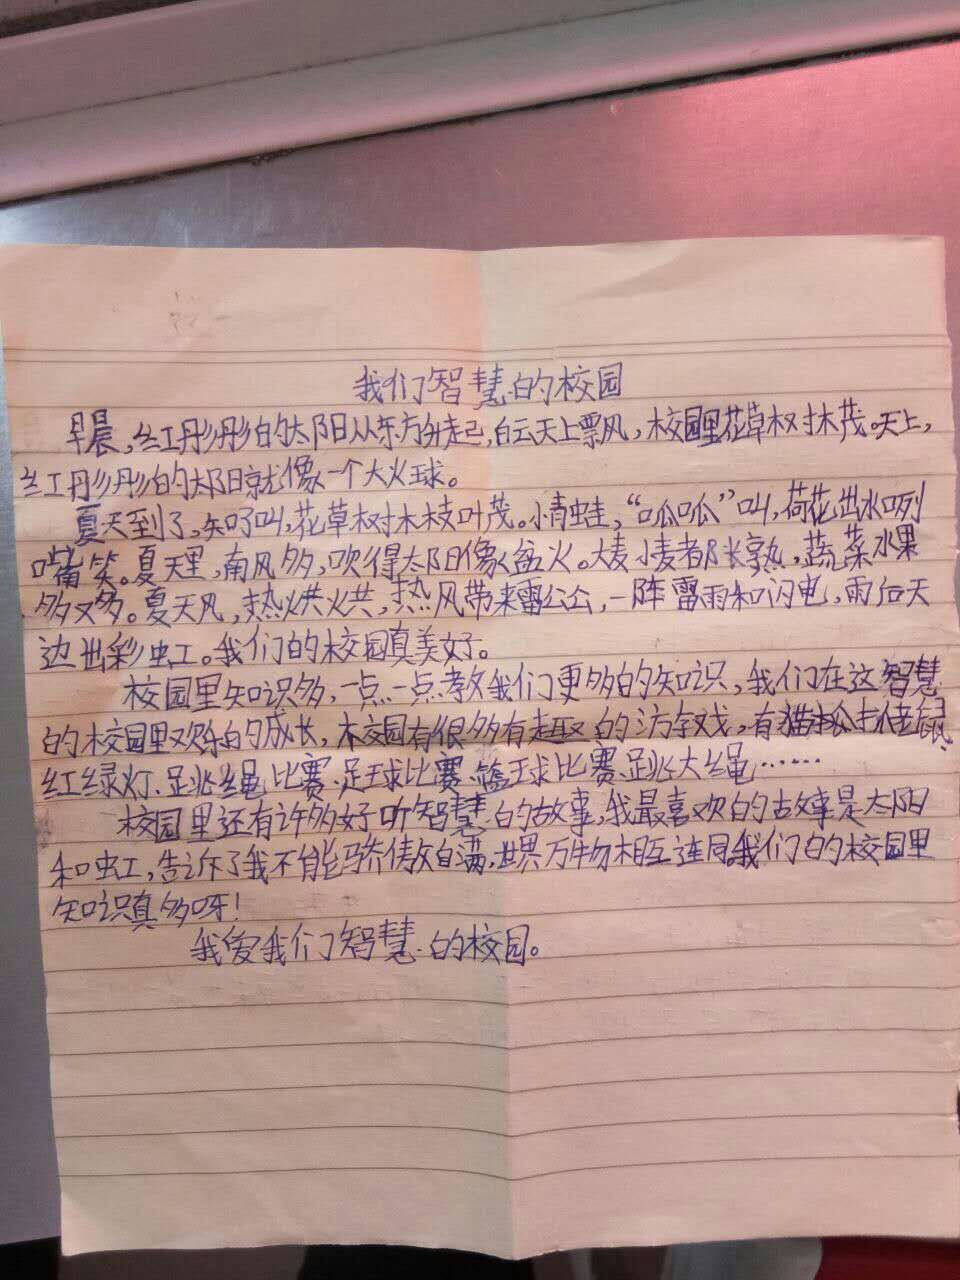 我们智慧的校园
早晨,红彤彤的太阳从东方升起,白云天上票风,校园里花草树木茂。天上,
红彤彤的太阳就像一个大火球。
夏天到了,知了叫,花草树木枝叶茂。小青蛙,“呱呱”叫,荷花出水咧
嘴笑。夏天里,南风多,吹得太阳像盆火。大麦小麦都长熟,蔬菜水果
多又多。夏天风,热烘烘,热风带来雷公公,一阵雷雨和闪电,雨后天
边出彩虹。我们的校园真美好。
校园里知识多,一点一点教我们更多的知识,我们在这智慧
的校园里欢乐的成长,校园有很多有趣的游戏,有猫捉老鼠、
红绿灯、跳绳比赛、足球比赛、篮球比赛、跳大绳……
校园里还有许多好听智慧的故事,我最喜欢的故事是太阳
和虹,告诉了我不能骄傲自满,世界万物相互连同。我们的校园里
知识真多呀!
我爱我们智慧的校园。